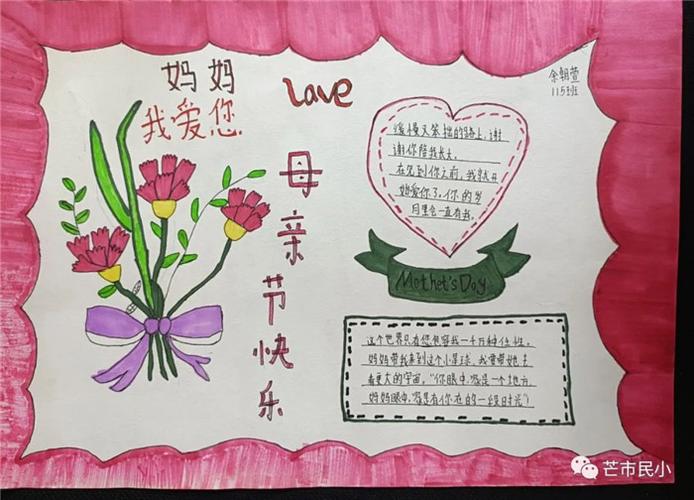 妈妈
我爱您
Love
余朝萱
115班
母亲节快乐
缓慢又笨拙的路上,谢
谢你陪我长大。
在见到你之前,我就开
始爱你了,你的岁
月里会一直有我。
Mother's Day
这个世界只有您包容我一千万种任性,
妈妈带我来到这个小星球,我要带她去
看更大的宇宙,“你眼中,家是一个地方,
妈妈眼中,家是有你在的一段时光”)
芒市民小